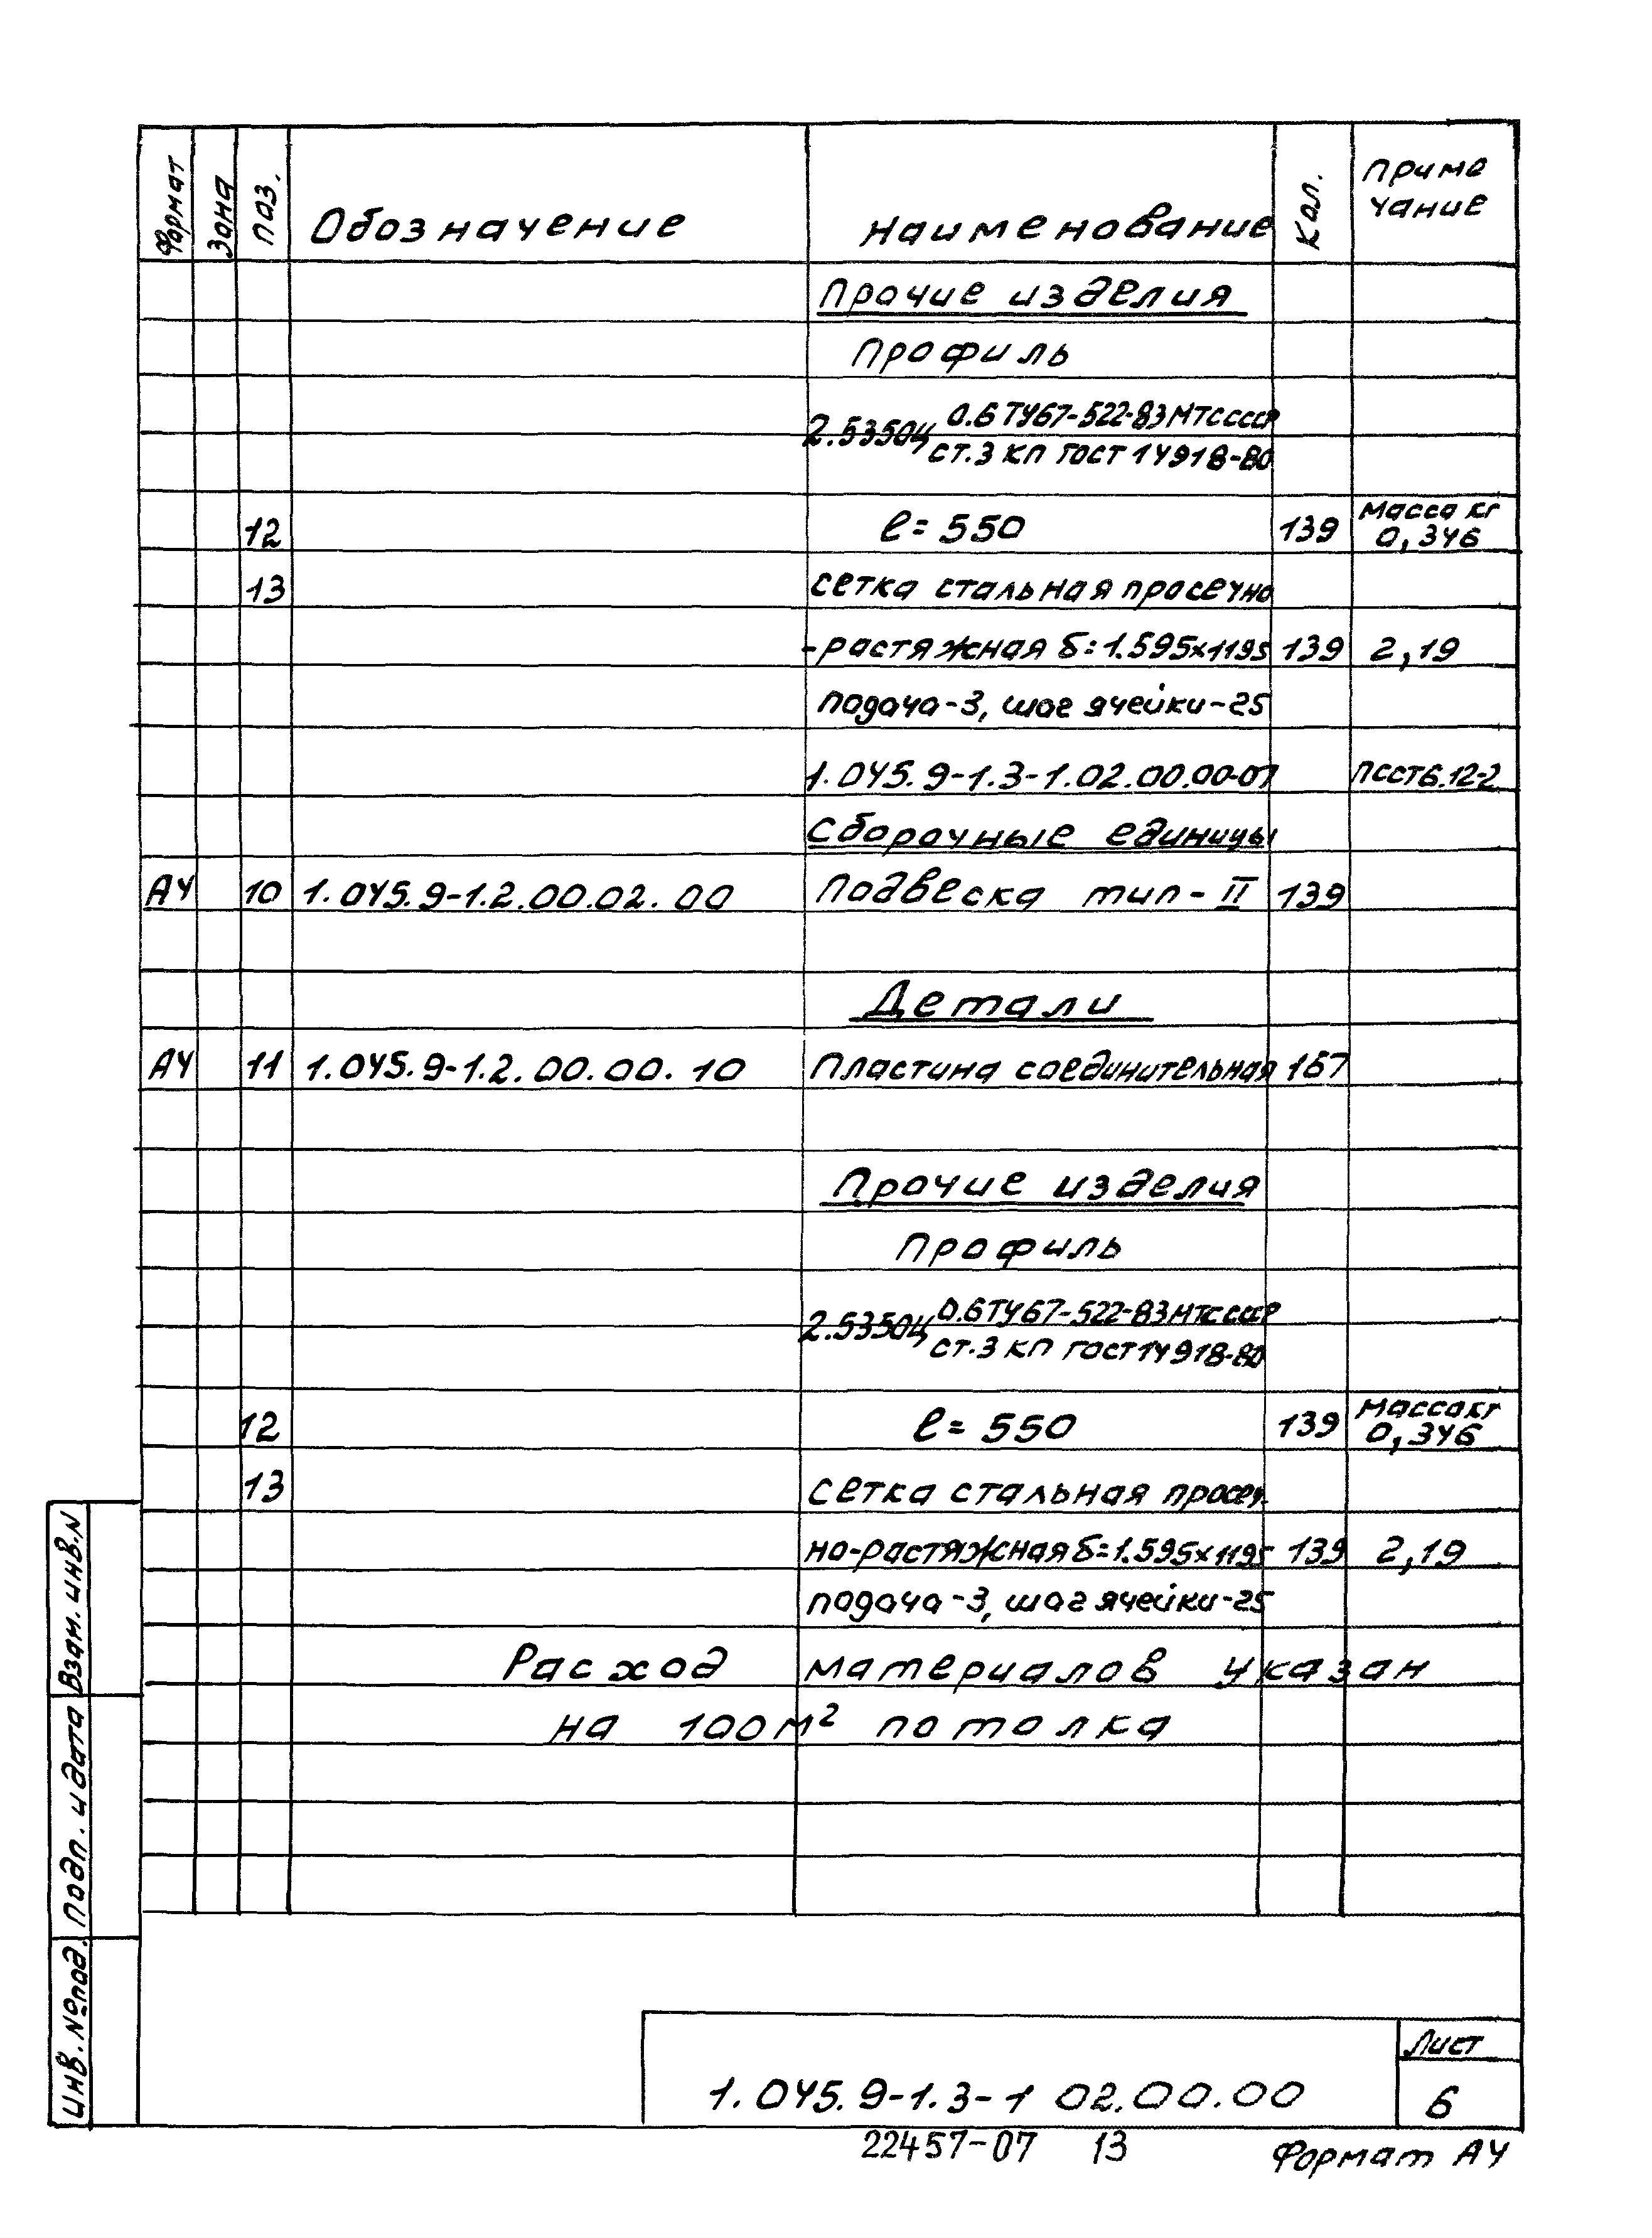 Формат Зона Поз. Обозначение Наименование Кол. Приме
чание
Прочие изделия
Профиль
2.5350Ц 0.6 ТУ67-522-83 МТСССР
ст.3 кп ГОСТ 14918-80
12 ℓ=550 139 Масса кг
0,346
13 сетка стальная просечно
-растяжная δ=1.595х1195 139 2,19
подача-3, шаг ячейки-25
1.045.9-1.3-1.02.00.00-07 ПССТ6.12-2
Сборочные единицы
А4 10 1.045.9-1.2.00.02.00 Подвеска тип-II 139
Детали
А4 11 1.045.9-1.2.00.00.10 Пластина соединительная 167
Прочие изделия
Профиль
2.5350Ц 0.6ТУ67-522-83 МТСССР
ст.3 кп ГОСТ14918-80
12 ℓ=550 139 Масса кг
0,346
13 сетка стальная просеч-
но-растяжная δ=1.595х1195 139 2,19
подача-3, шаг ячейки-25
Расход материалов указан
на 100м² потолка
Взам. инв. N
Подп. и дата
Инв. № под.
1.045.9-1.3-1 02.00.00
Лист
6
22457-07 13 Формат А4